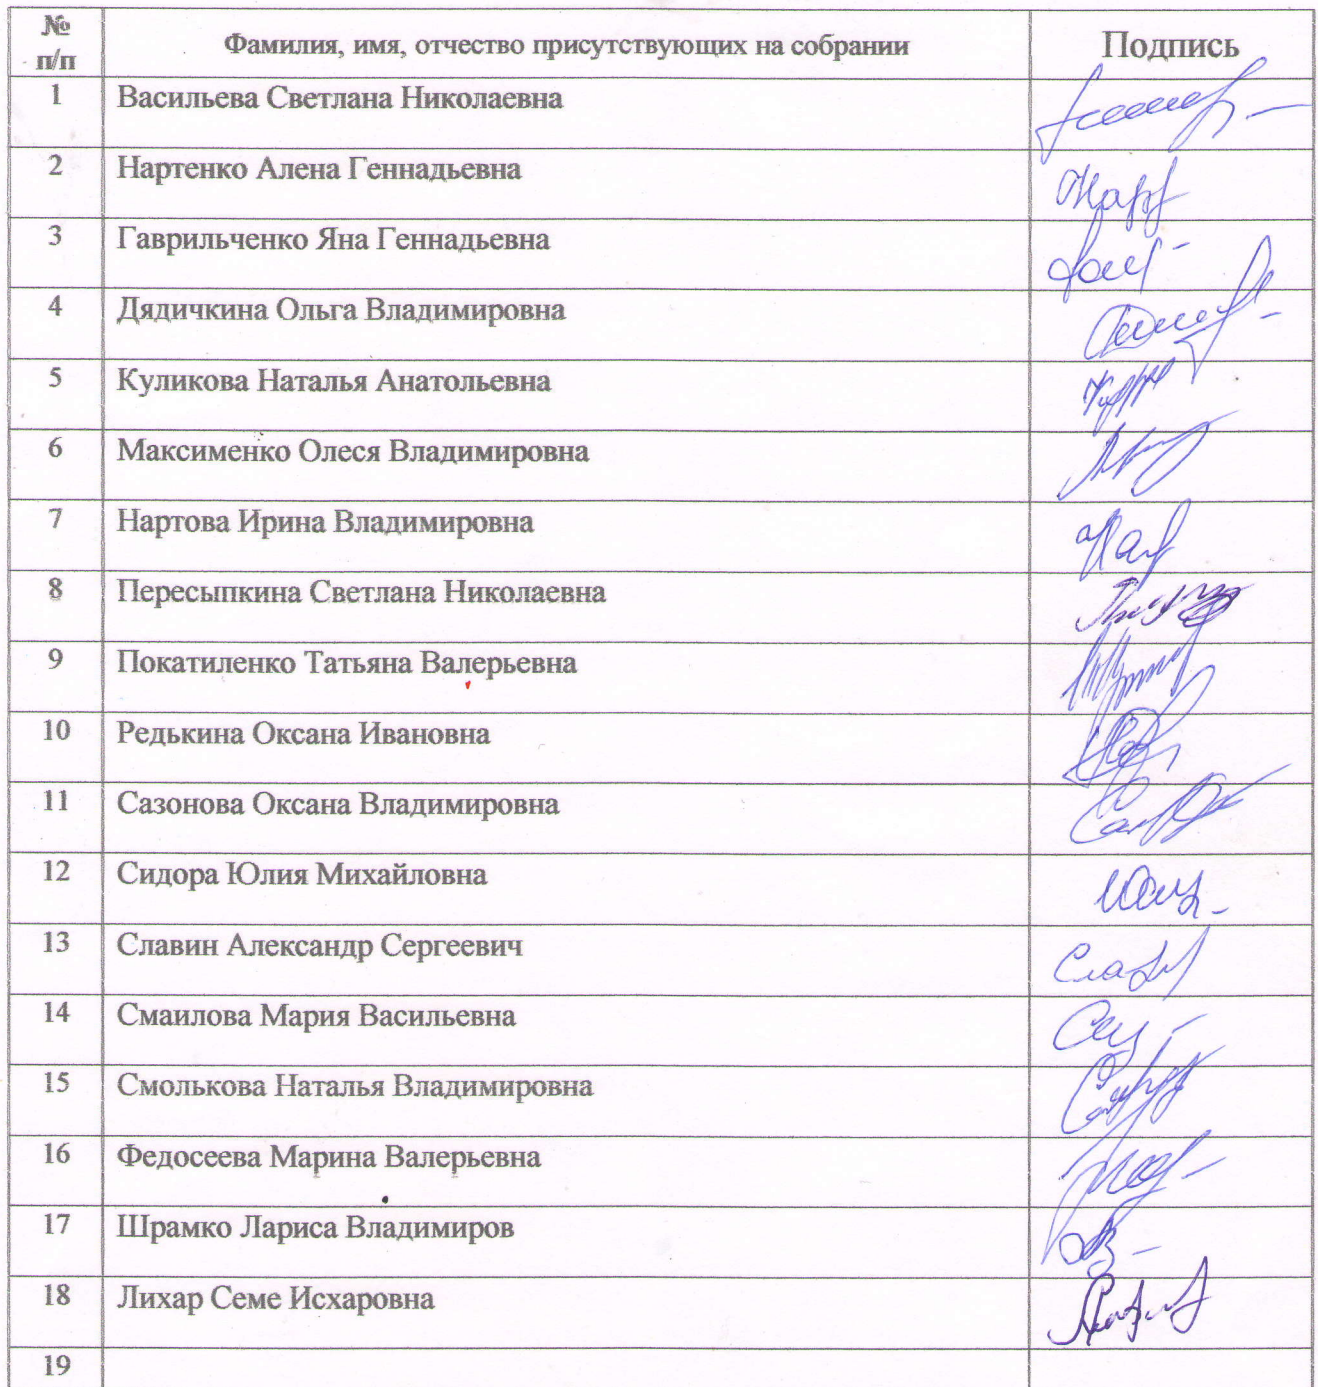 № п/п Фамилия, имя, отчество присутствующих на собрании Подпись
1 Васильева Светлана Николаевна
2 Нартенко Алена Геннадьевна
3 Гаврильченко Яна Геннадьевна
4 Дядичкина Ольга Владимировна
5 Куликова Наталья Анатольевна
6 Максименко Олеся Владимировна
7 Нартова Ирина Владимировна
8 Пересыпкина Светлана Николаевна
9 Покатиленко Татьяна Валерьевна
10 Редькина Оксана Ивановна
11 Сазонова Оксана Владимировна
12 Сидора Юлия Михайловна
13 Славин Александр Сергеевич
14 Смаилова Мария Васильевна
15 Смолькова Наталья Владимировна
16 Федосеева Марина Валерьевна
17 Шрамко Лариса Владимиров
18 Лихар Семе Исхаровна
19